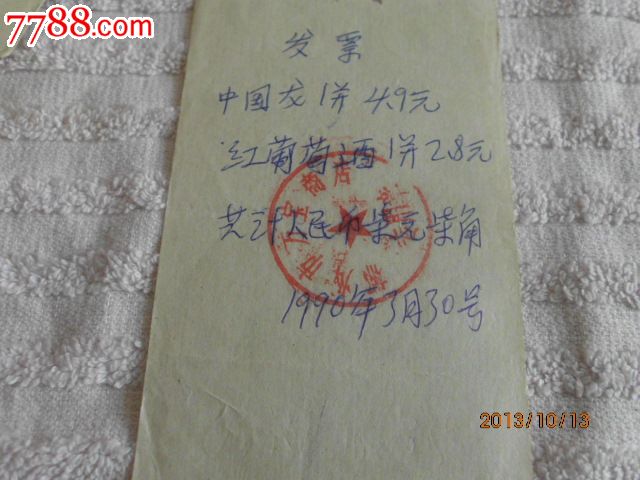 7788.com
发票
中国龙1并 4.9元
红葡萄酒1并 2.8元
共计人民币柒元柒角
商店
1990年3月30号
2013/10/13